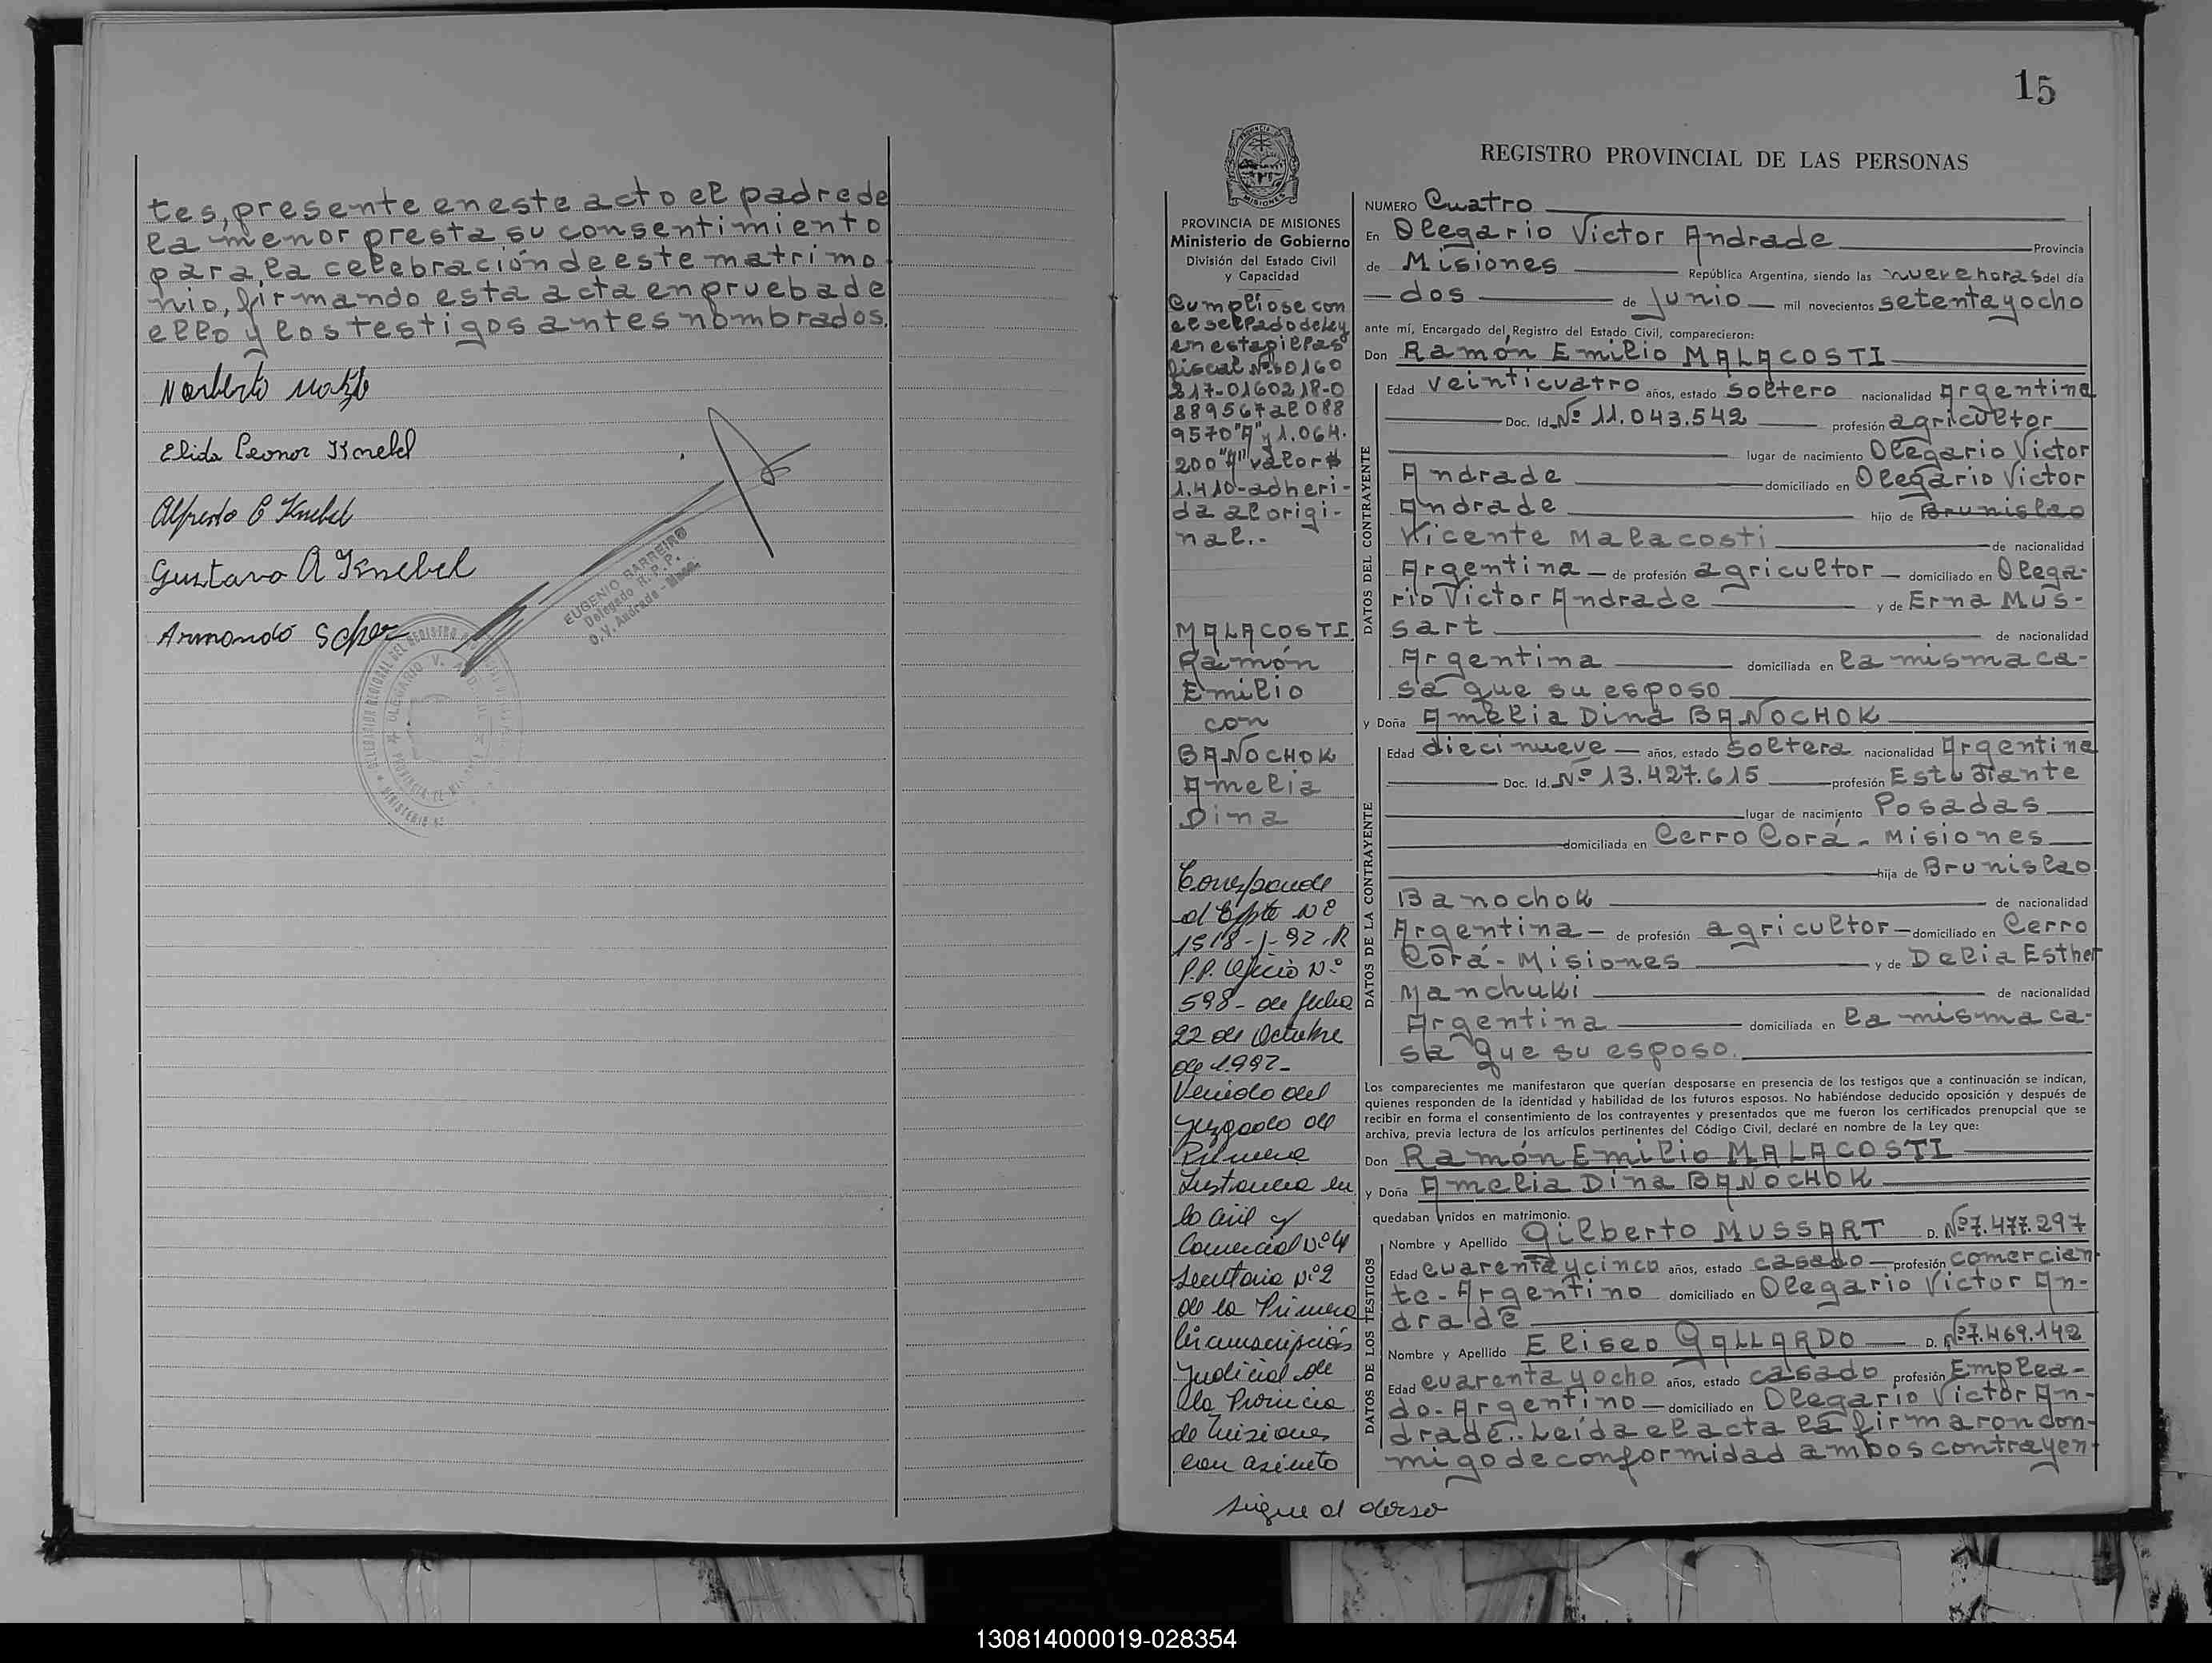 tes, presente en este acto el padre de
la menor presta su consentimiento
para la celebración de este matrimo
nio, firmando esta acta en prueba de
ello y los testigos antes nombrados.
Norberto
Elida Leonor Knebel
Alfredo C Knebel
Gustavo A Knebel
Armando Scher
EUGENIO BARREIRO
Delegado R.P.P.
O.V. Andrade -
15
REGISTRO PROVINCIAL DE LAS PERSONAS
PROVINCIA DE MISIONES
Ministerio de Gobierno
División del Estado Civil
y Capacidad
Cumpliose con
el sellado de ley
en estapillas
fiscal Nº 0160
217-0160218-0
889567 al 088
9570"A" y 1.064.
200"A" valor $
1.410-adheri-
da al origi-
nal.-
MALACOSTI
Ramón
Emilio
con
BANOCHOK
Amelia
Dina
Corresponde
al Expte Nº
1518-J-92-R
P.P. Oficio Nº
598- de fecha
22 de Octubre
de 1.992-
Venido del
Juzgado de
Primera
Instancia en
lo Civil y
Comercial Nº 4
Secretaria Nº 2
de la Primera
Circunscripción
Judicial de
la Provincia
de Misiones
con asiento
NUMERO Cuatro
En Olegario Victor Andrade Provincia
de Misiones República Argentina, siendo las nueve horas del día
dos de Junio mil novecientos setenta y ocho
ante mí, Encargado del Registro del Estado Civil, comparecieron:
Don Ramón Emilio MALACOSTI
DATOS DEL CONTRAYENTE
Edad veinticuatro años, estado soltero nacionalidad Argentina
Doc. Id. Nº 11.043.542 profesión agricultor
lugar de nacimiento Olegario Victor
Andrade domiciliado en Olegario Victor
Andrade hijo de Brunislao
Vicente Malacosti de nacionalidad
Argentina de profesión agricultor domiciliado en Olega-
rio Victor Andrade y de Erna Mus-
sart de nacionalidad
Argentina domiciliada en la misma ca-
sa que su esposo
y Doña Amelia Dina BANOCHOK
DATOS DE LA CONTRAYENTE
Edad diecinueve años, estado soltera nacionalidad Argentina
Doc. Id. Nº 13.427.615 profesión Estudiante
lugar de nacimiento Posadas
domiciliada en Cerro Corá - Misiones
hija de Brunislao
Banochok de nacionalidad
Argentina de profesión agricultor domiciliado en Cerro
Corá - Misiones y de Delia Esther
Manchuki de nacionalidad
Argentina domiciliada en la misma ca-
sa que su esposo.
Los comparecientes me manifestaron que querían desposarse en presencia de los testigos que a continuación se indican,
quienes responden de la identidad y habilidad de los futuros esposos. No habiéndose deducido oposición y después de
recibir en forma el consentimiento de los contrayentes y presentados que me fueron los certificados prenupcial que se
archiva, previa lectura de los artículos pertinentes del Código Civil, declaré en nombre de la Ley que:
Don Ramón Emilio MALACOSTI
y Doña Amelia Dina BANOCHOK
quedaban unidos en matrimonio.
DATOS DE LOS TESTIGOS
Nombre y Apellido Gilberto MUSSART D. Nº 7.477.297
Edad cuarenta y cinco años, estado casado profesión comercian-
te - Argentino domiciliado en Olegario Victor An-
drade
Nombre y Apellido Eliseo GALLARDO D. Nº 7.469.142
Edad cuarenta y ocho años, estado casado profesión Emplea-
do - Argentino domiciliado en Olegario Victor An-
drade.. Leída el acta la firmaron con-
migo de conformidad ambos contrayen-
sigue al dorso
130814000019-028354